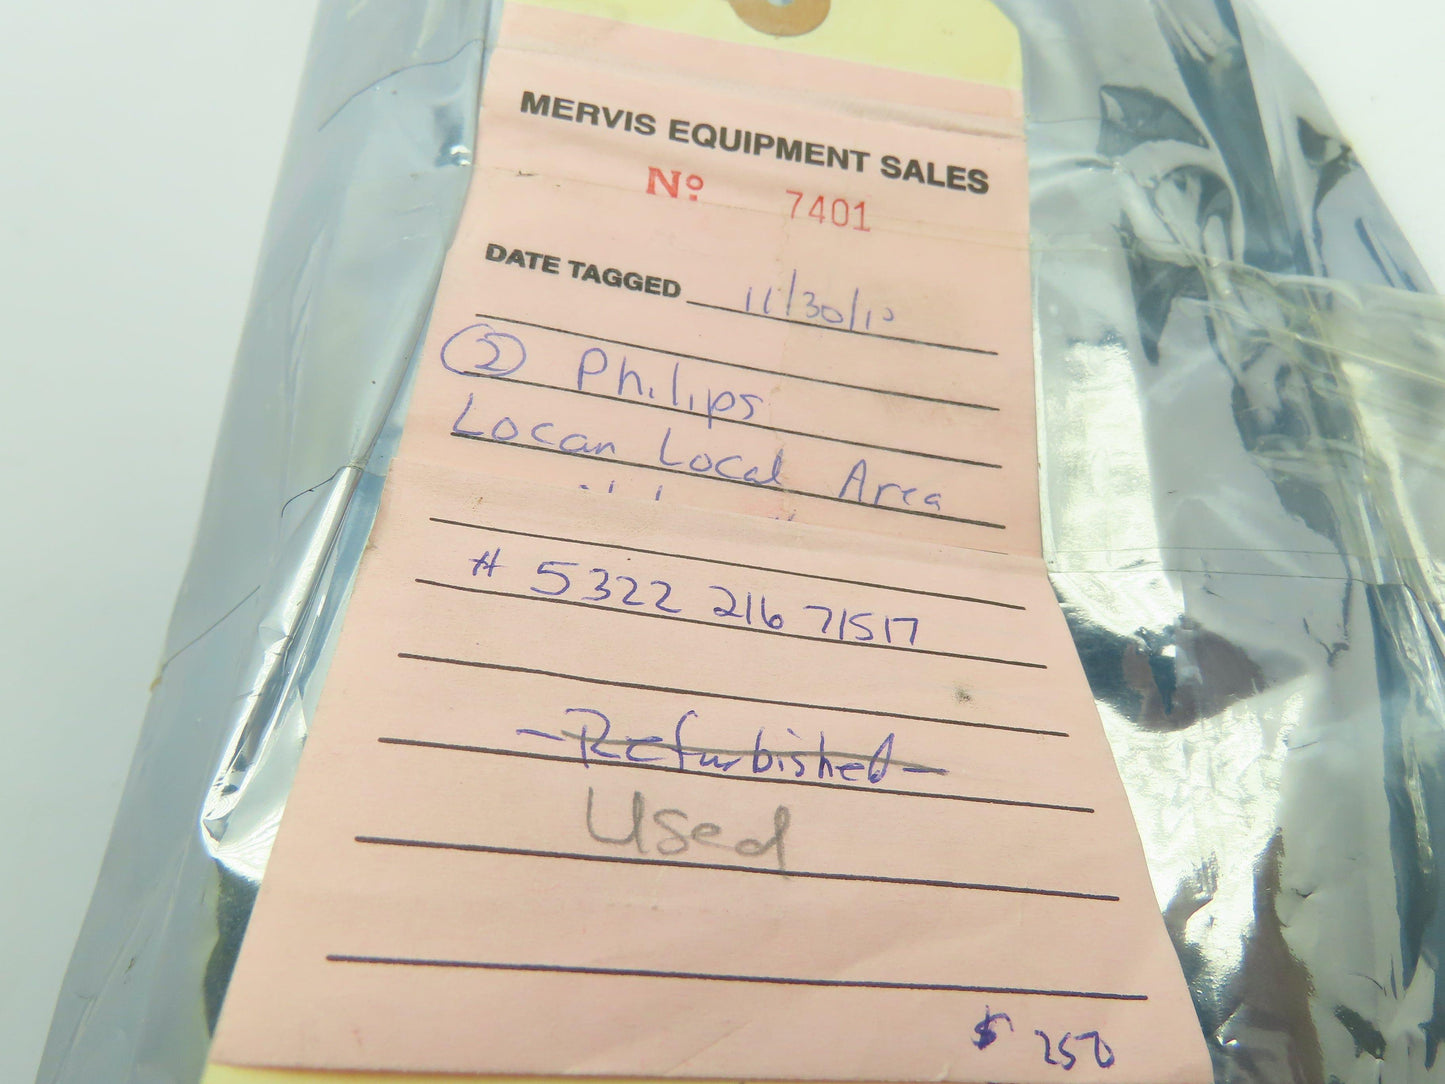 MERVIS EQUIPMENT SALES
Nº 7401
DATE TAGGED 11/30/10
② Philips
Locan Local Area
# 5322 216 71517
- Refurbished -
Used
$ 250